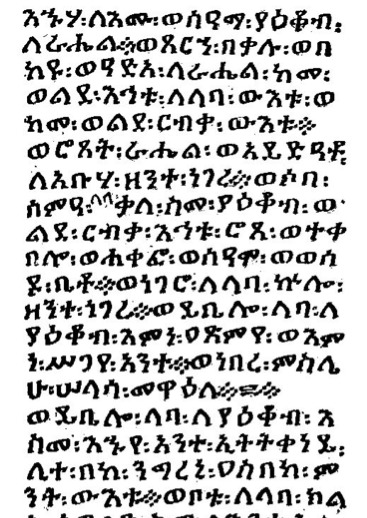 እኁሃ፡ለእሙ፡ወሰዓማ፡ያዕቆብ፡
ለራሔል፨ወጸርኀ፡በቃሉ፡ወበ
ከዩ፡ወዓድአ፡ለራሔል፡ከመ፡
ወልደ፡እኅቱ፡ለላባ፡ውእቱ፡ወ
ከመ፡ወልደ፡ርብቃ፡ውእቱ፨
ወሮጸት፡ራሔል፡ወአይድዓቶ፡
ለአቡሃ፡ዘንተ፡ነገረ፨ወሶበ፡
ሰምዓ፡ላባ፡ቃለ፡ስመ፡ያዕቆብ፡ወ
ልደ፡ርብቃ፡እኅቱ፡ሮጸ፡ወተቀ
በሎ፡ወሐቀፎ፡ወሰዓሞ፡ወወሰ
ዶ፡ቤቶ፨ወነገሮ፡ለላባ፡ኵሎ፡
ዘንተ፡ነገረ፨ወይቤሎ፡ላባ፡ለ
ያዕቆብ፡እምነ፡ዐጽምየ፡ወእም
ነ፡ሥጋየ፡አንተ፨ወነበረ፡ምስሌ
ሁ፡ሠላሳ፡መዋዕለ፨=፨
ወይቤሎ፡ላባ፡ለያዕቆብ፡እ
ስመ፡እኁየ፡አንተ፡ኢትትቀነይ፡
ሊተ፡በከ፡ንግረኒ፡ዐስበከ፡ም
ንት፡ውእቱ፨ወቦቱ፡ለላባ፡ክል